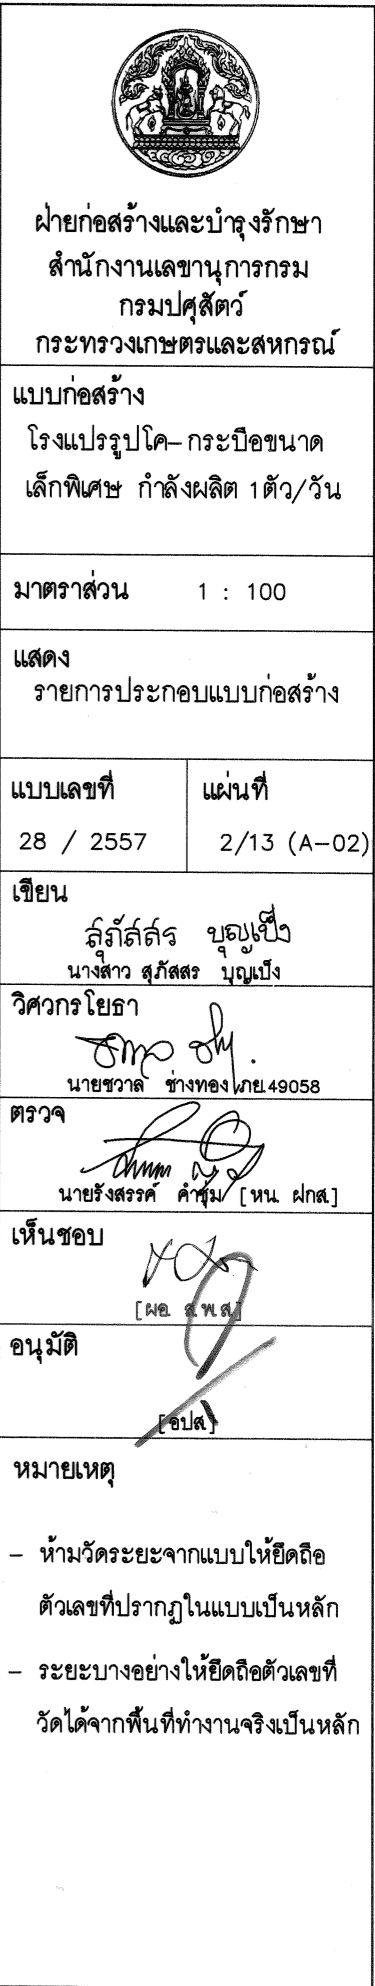 ฝ่ายก่อสร้างและบำรุงรักษา
สำนักงานเลขานุการกรม
กรมปศุสัตว์
กระทรวงเกษตรและสหกรณ์
แบบก่อสร้าง
โรงแปรรูปโค-กระบือขนาด
เล็กพิเศษ กำลังผลิต 1ตัว/วัน
มาตราส่วน 1 : 100
แสดง
รายการประกอบแบบก่อสร้าง
แบบเลขที่ แผ่นที่
28 / 2557 2/13 (A-02)
เขียน
สุภัสสร บุญเป็ง
นางสาว สุภัสสร บุญเป็ง
วิศวกรโยธา
นายชวาล ช่างทอง ภย.49058
ตรวจ
นายรังสรรค์ คำซุ่ม [หน. ฝกส.]
เห็นชอบ
[ผอ. ส.พ.ส.]
อนุมัติ
[อปส.]
หมายเหตุ
- ห้ามวัดระยะจากแบบให้ยึดถือ
ตัวเลขที่ปรากฏในแบบเป็นหลัก
- ระยะบางอย่างให้ยึดถือตัวเลขที่
วัดได้จากพื้นที่ทำงานจริงเป็นหลัก